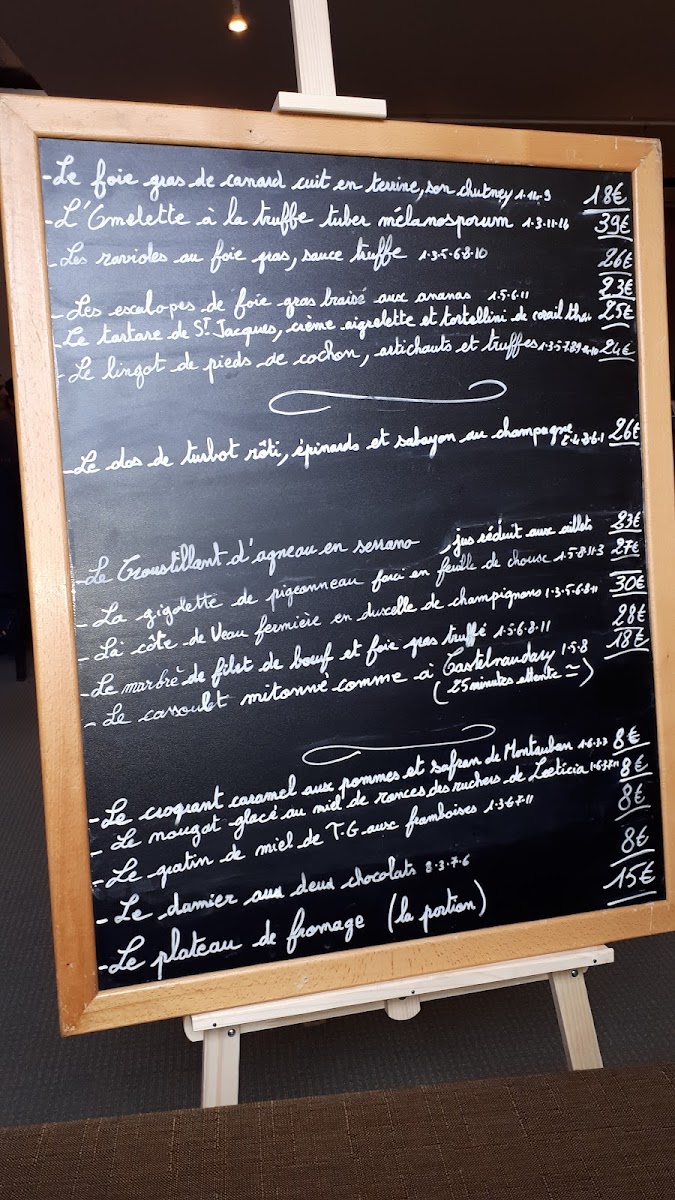 -Le foie gras de canard cuit en terrine, son chutney 1.14.9 18€
-L'Omelette à la truffe tuber mélanosporum 1.3.11.14 39€
-Les ravioles au foie gras, sauce truffe 1.3.5.6.8.10 26€
-Les escalopes de foie gras braisé aux ananas 1.5.6.11 23€
-Le tartare de St Jacques, crème aigrelette et tortellini de corail thai 25€
-Le lingot de pieds de cochon, artichauts et truffes 24€
-Le dos de turbot rôti, épinards et sabayon au champagne 26€
-Le Croustillant d'agneau en serrano, jus réduit aux aillets 23€
-La gigolette de pigeonneau farci en feuille de chouse 1.5.8.11.3 27€
-La côte de Veau fermière en duxelle de champignons 1.3.5.6.8.11 30€
-Le marbré de filet de bœuf et foie gras truffé 1.5.6.8.11 28€
-Le cassoulet mitonné comme à Castelnaudary 1.5.8 18€
(25 minutes attente =)
-Le croquant caramel aux pommes et safran de Montauban 1.6.3.7 8€
-Le nougat glacé au miel de ronces des ruchers de Lœticia 8€
-Le gratin de miel de T.G aux framboises 1.3.6.7.11 8€
-Le damier aux deux chocolats 8.3.7.6 8€
-Le plateau de fromage (la portion) 15€